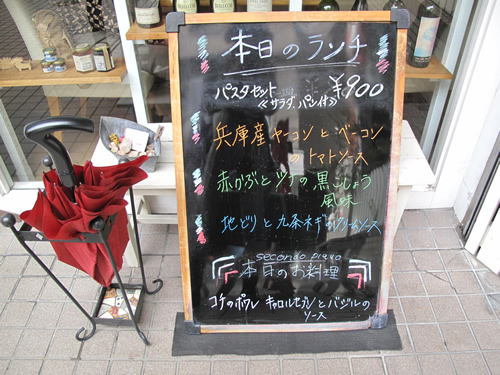 本日のランチ
パスタセット ¥900
≪サラダ、パン付≫
兵庫産ヤーコンとベーコン
のトマトソース
赤かぶとツナの黒こしょう
風味
地どりと九条ネギのクリームソース
secondo piatto
本日のお料理
コチのポワレ キャロルセブンとバジルの
ソース